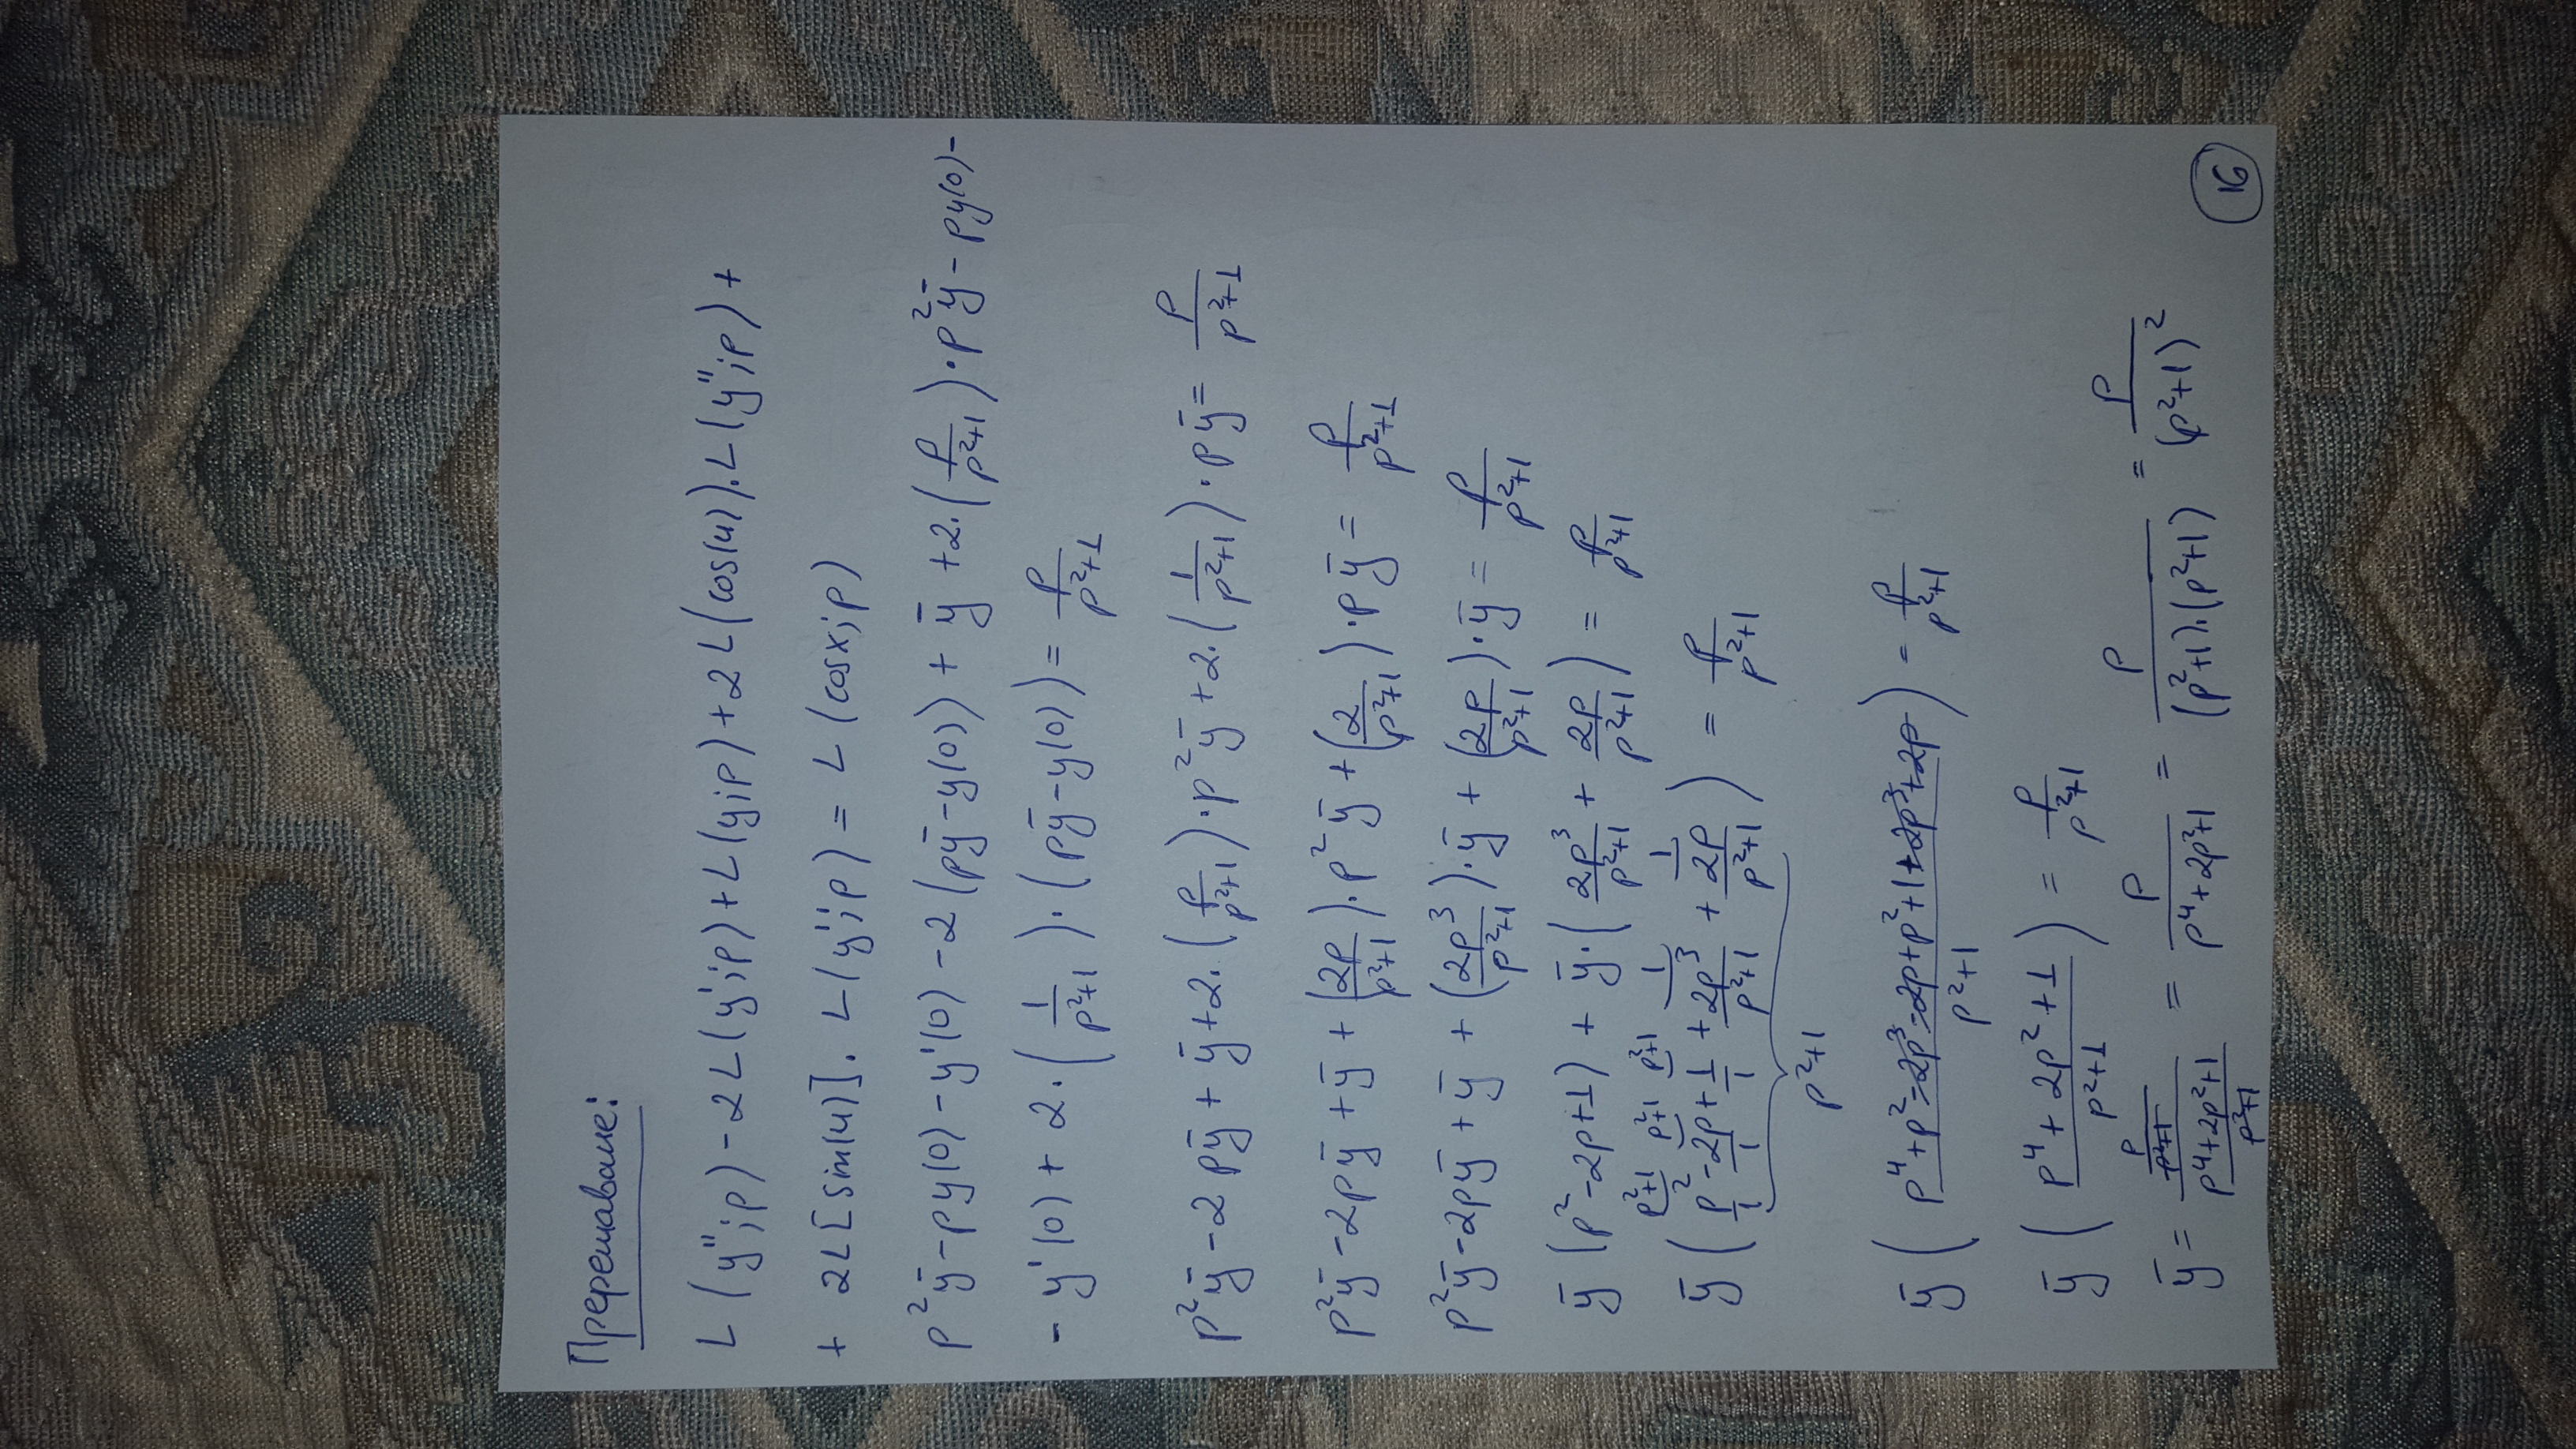 Преремаваме:
L(y'';p) - 2L(y';p) + L(y;p) + 2L(cos(u)).L(y'';p) +
+ 2L[sin(u)]. L(y';p) = L(cosx;p)
p²ȳ - py(0) - y'(0) - 2(pȳ - y(0)) + ȳ + 2.(p/(p²+1)).p²ȳ - py(0) -
- y'(0) + 2.(1/(p²+1)).(pȳ - y(0)) = p/(p²+1)
p²ȳ - 2pȳ + ȳ + 2.(p/(p²+1)).p²ȳ + 2.(1/(p²+1)).pȳ = p/(p²+1)
p²ȳ - 2pȳ + ȳ + (2p/(p²+1)).p²ȳ + (2/(p²+1)).pȳ = p/(p²+1)
p²ȳ - 2pȳ + ȳ + (2p³/(p²+1)).ȳ + (2p/(p²+1)).ȳ = p/(p²+1)
ȳ(p² - 2p + 1) + ȳ.(2p³/(p²+1) + 2p/(p²+1)) = p/(p²+1)
p²+1 p²+1 p²+1 1 1
ȳ(p²/1 - 2p/1 + 1/1 + 2p³/(p²+1) + 2p/(p²+1)) = p/(p²+1)
p²+1
ȳ((p⁴ + p² - 2p³ - 2p + p² + 1 + 2p³ + 2p)/(p²+1)) = p/(p²+1)
ȳ((p⁴ + 2p² + 1)/(p²+1)) = p/(p²+1)
ȳ = (p/(p²+1))/((p⁴+2p²+1)/(p²+1)) = p/(p⁴+2p²+1) = p/((p²+1).(p²+1)) = p/(p²+1)²
16